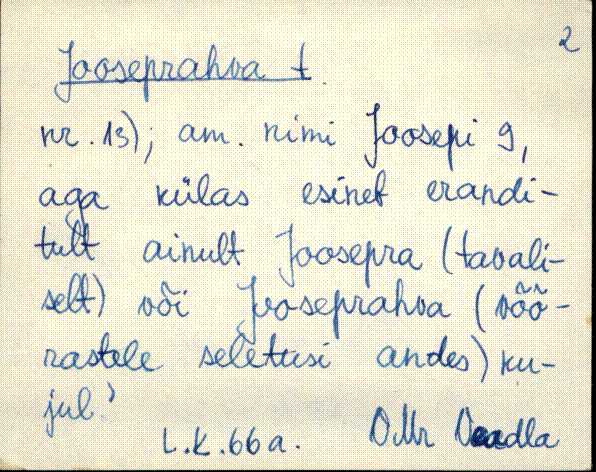 2
Jooseprahva t.
nr. 13); am. nimi Joosepi 9,
aga külas esinet erandi-
tult ainult Joosepra (tavali-
selt) või Jooseprahva (võõ-
rastele seletusi andes) ku-
jul.'
L.k. 66a.